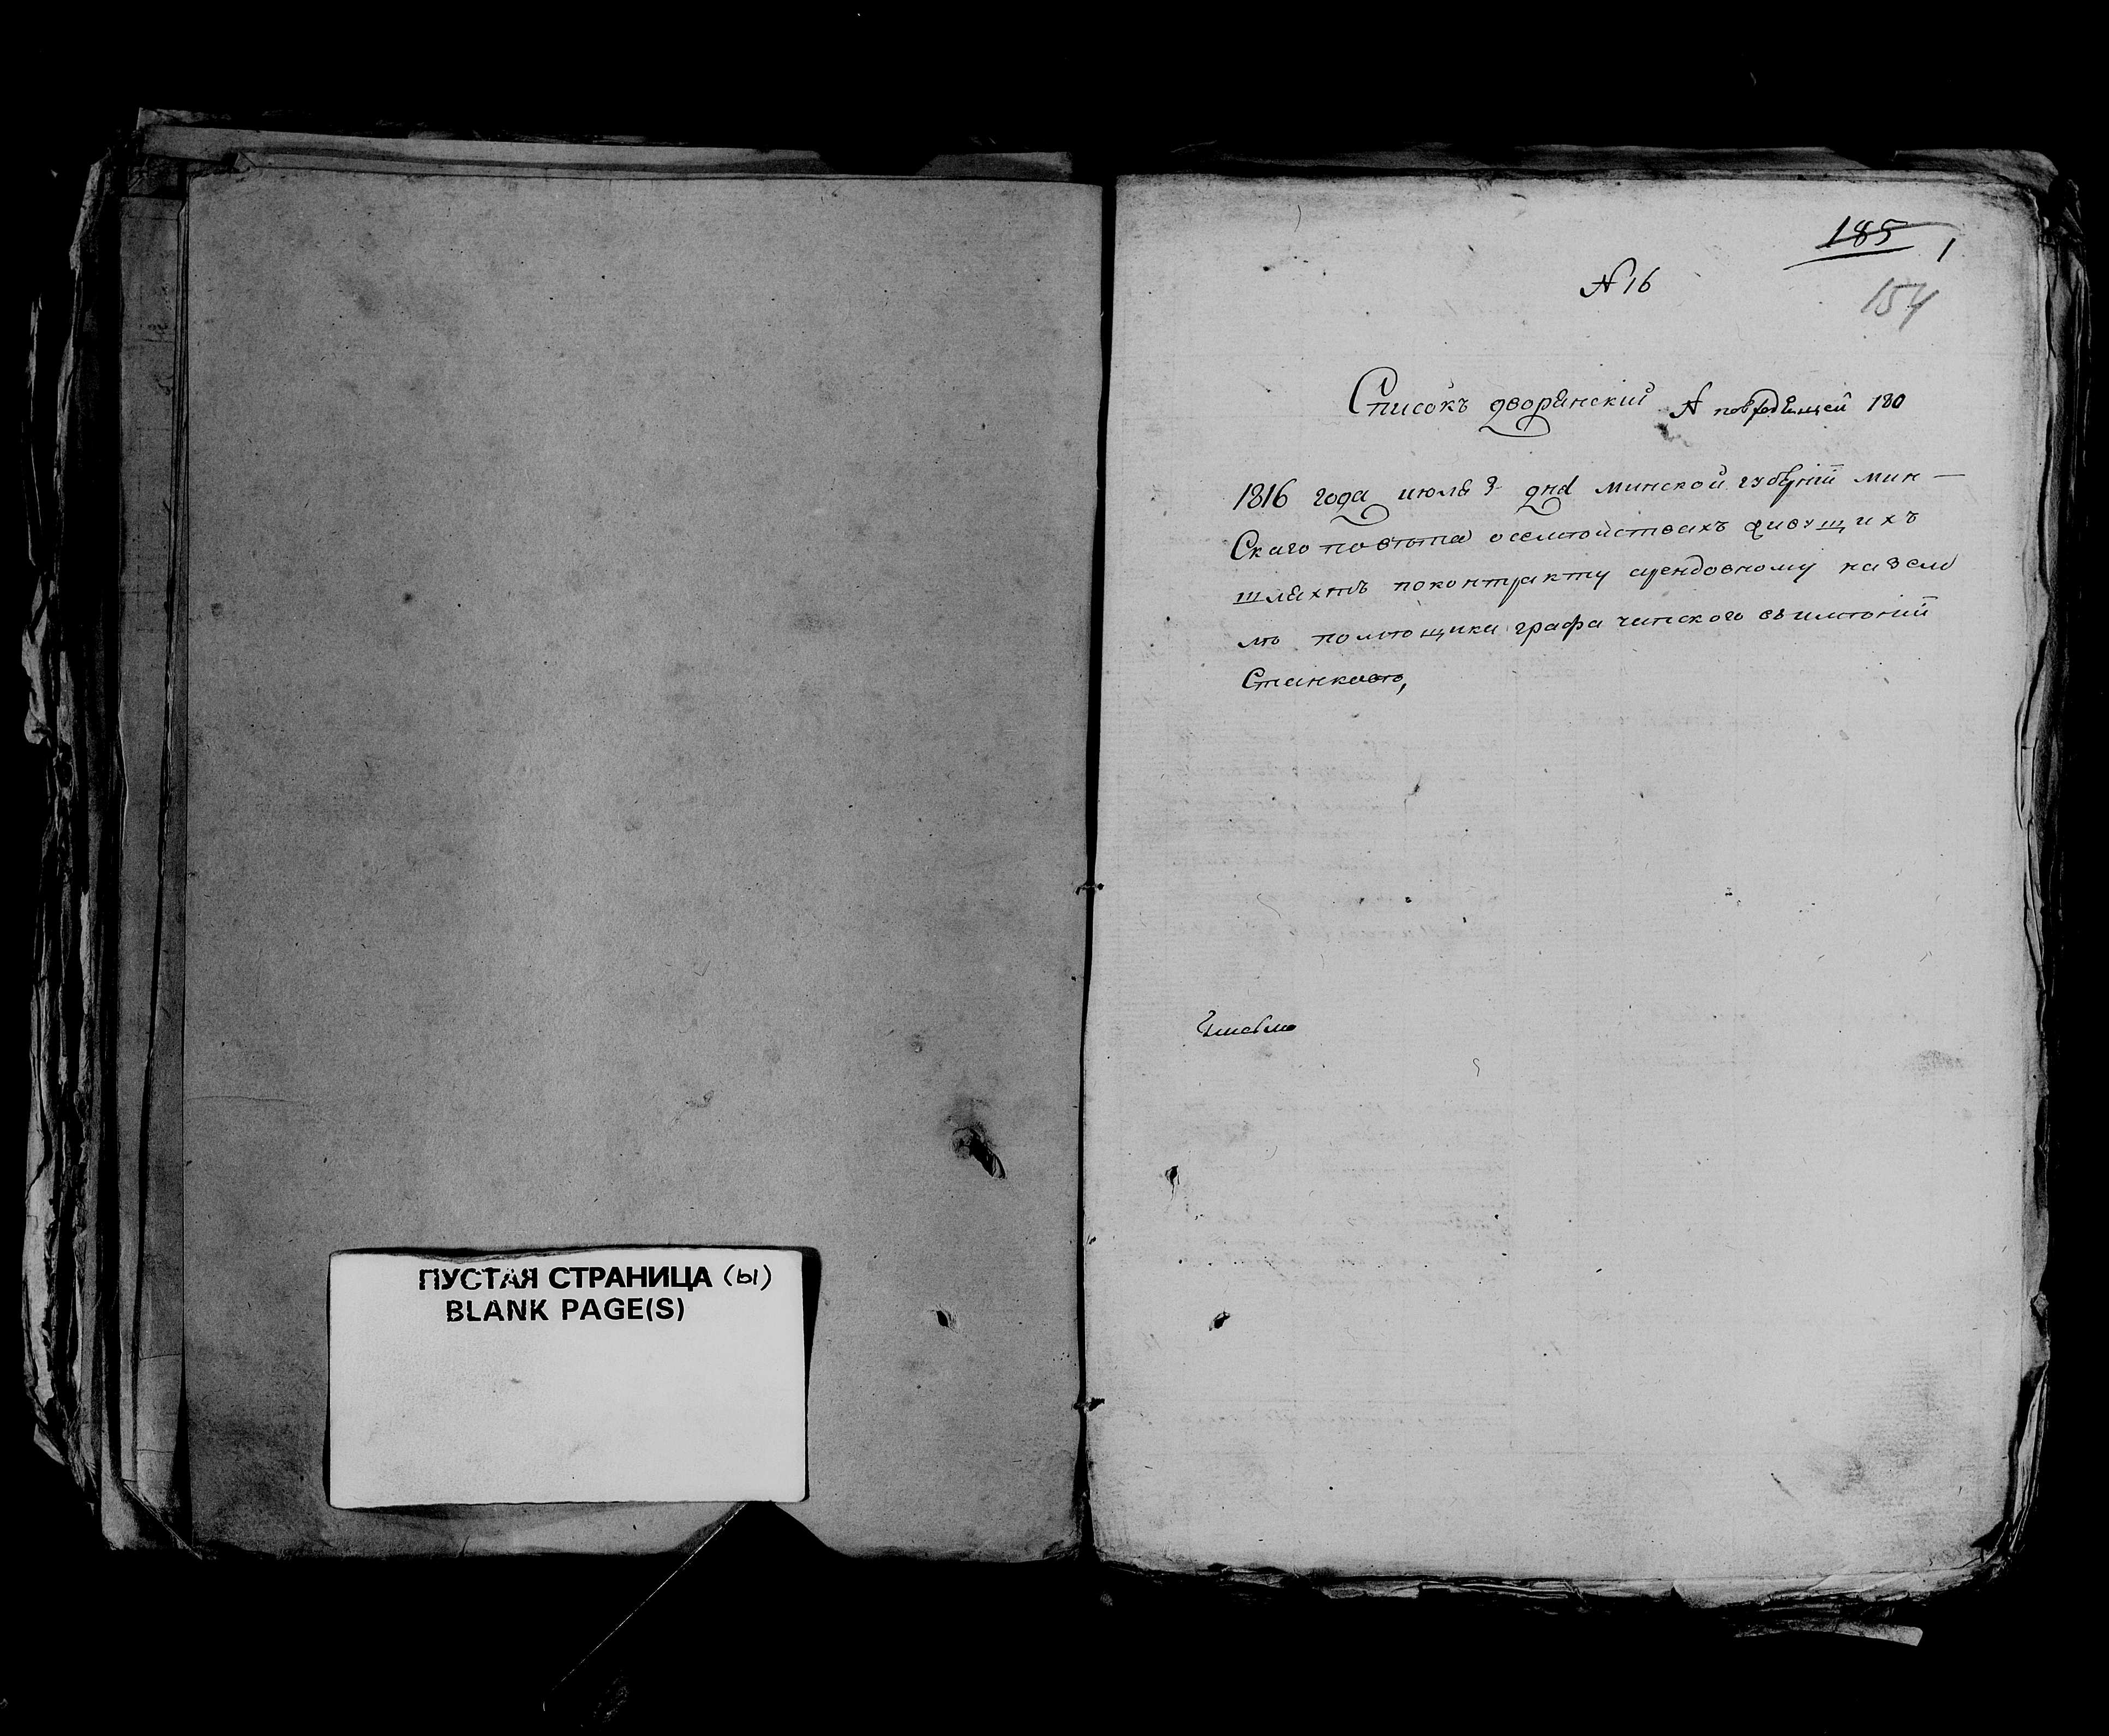 ПУСТАЯ СТРАНИЦА (ы)
BLANK PAGE(S)
185 1
154
№ 16
Списокъ дворянский № 180
1816 года июля 3 дня минской губѣрнии мин-
скаго повѣта осемѣйствахъ живущихъ
шляхтѣ поконтракту арендовному на зем
лѣ помѣщика графа чапского въимѣнии
Станковѣ,